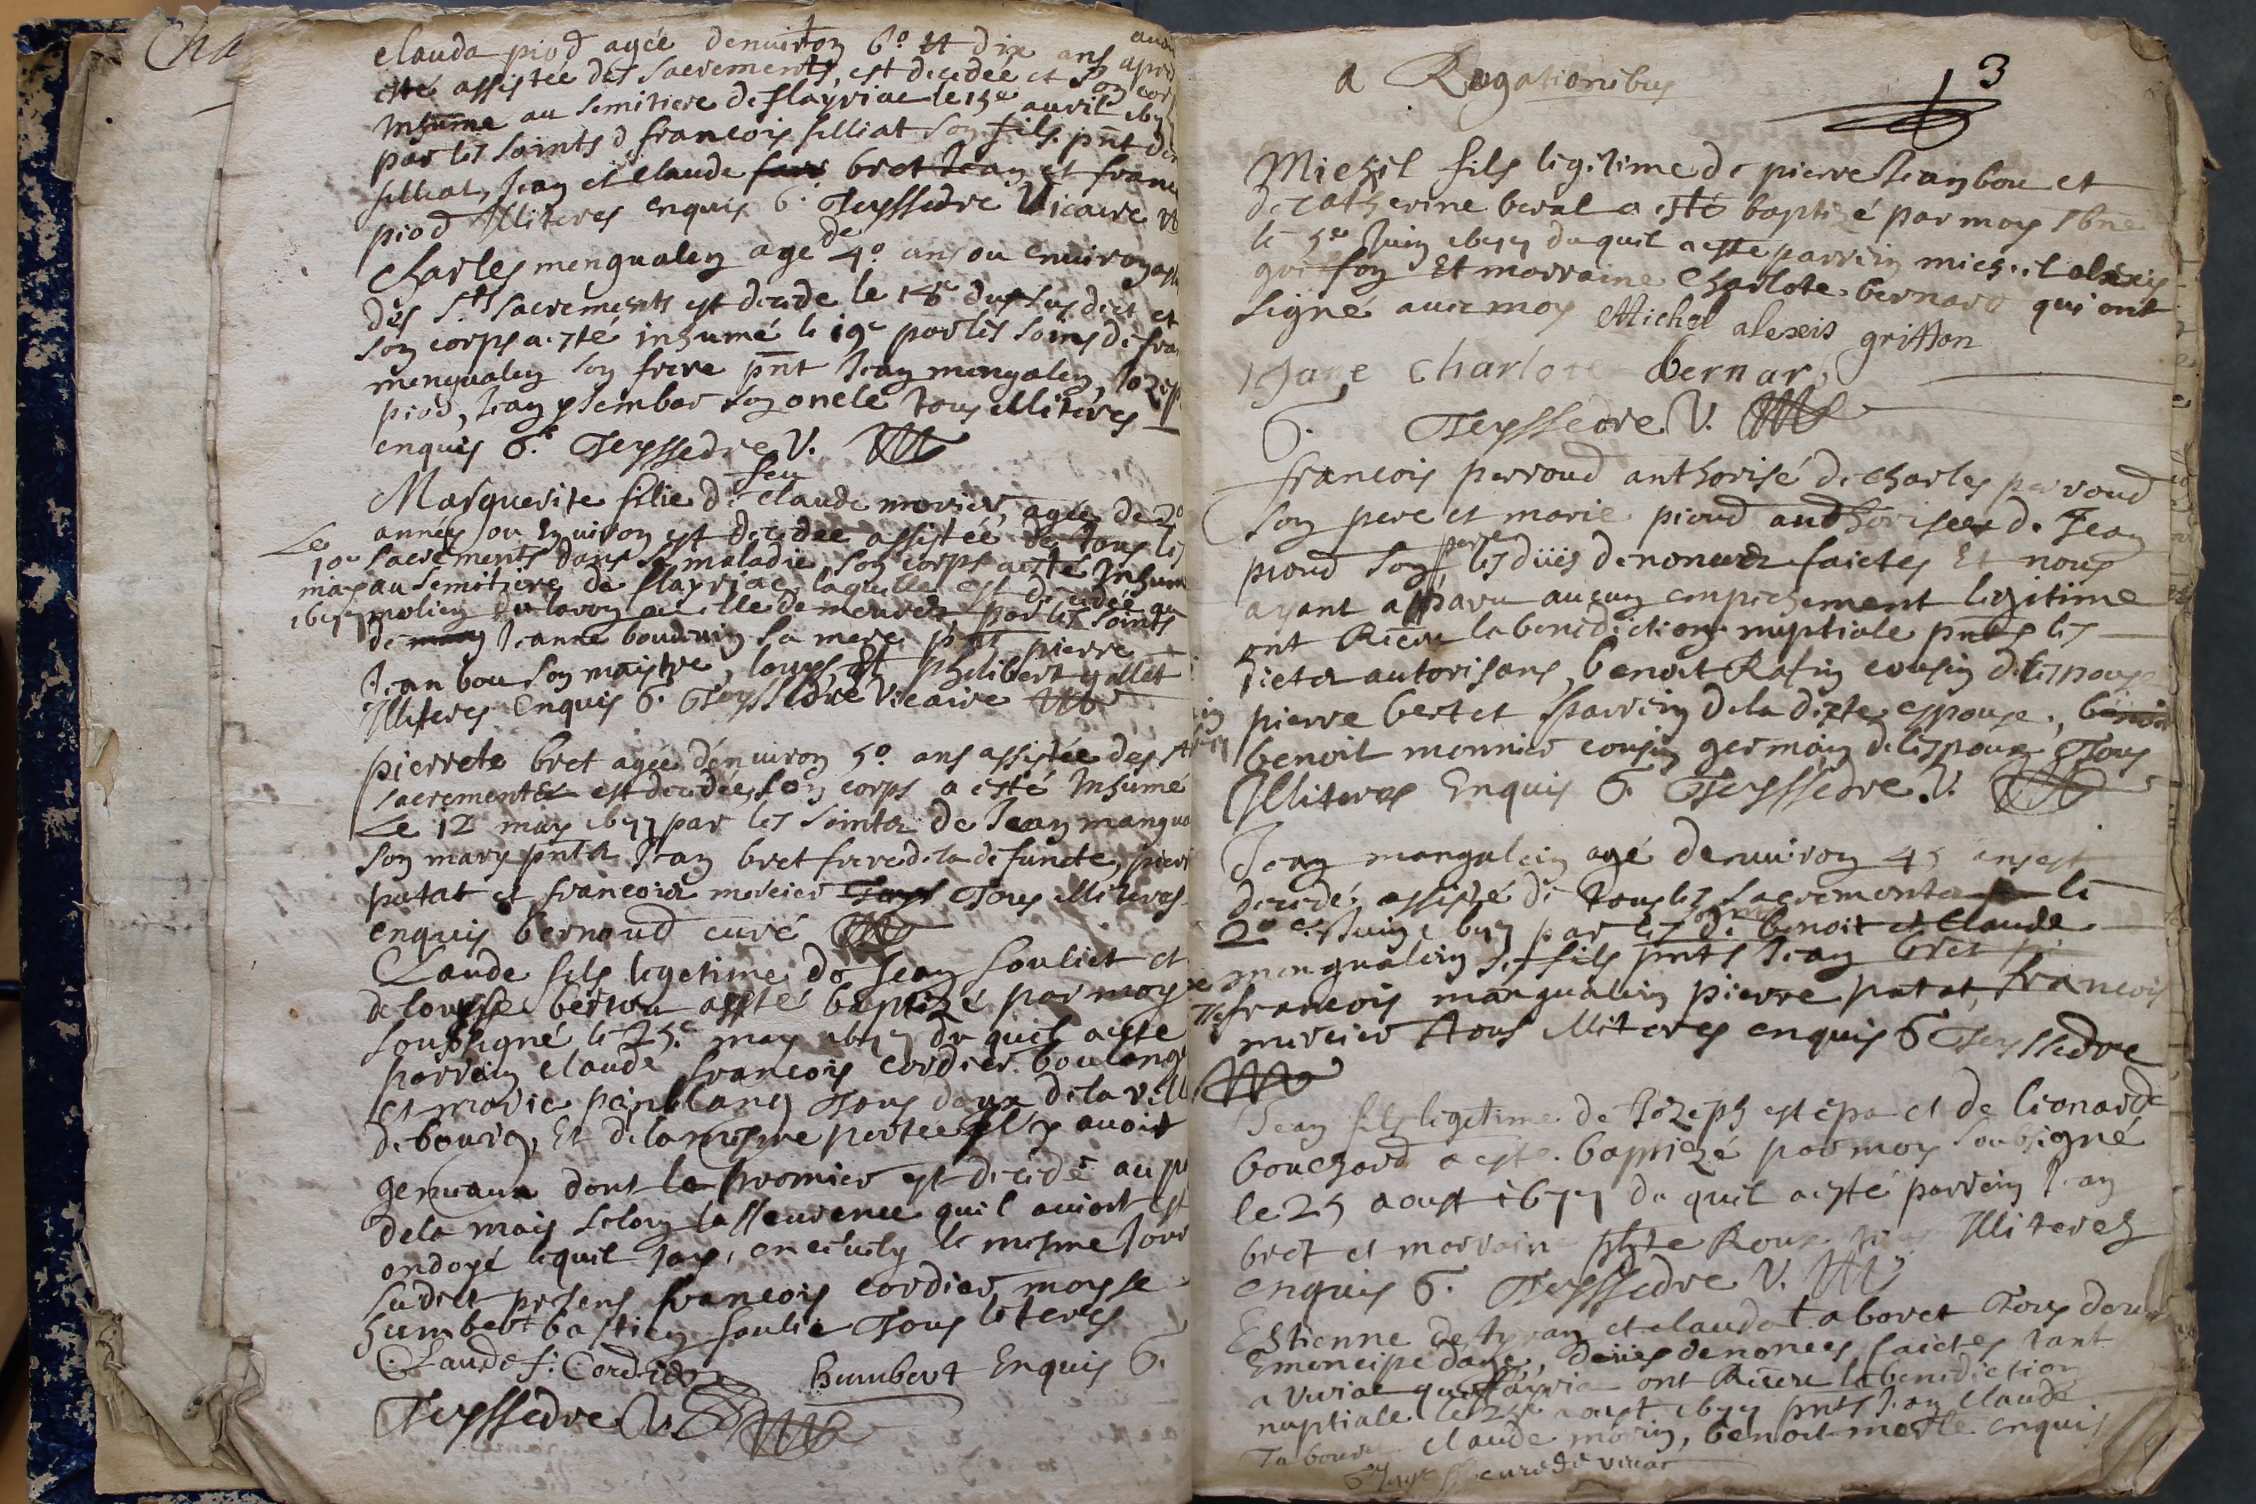 Cha
Clauda piod agée denuiron 6º et dix ans apres auoir
esté assistée des sacrements, est decedée et son corps
Inhumé au semitiere de flayriac le 15e auril 1677
par les soints d françois silliat son fils pnt
silliat, Jean et Claude bret Jean et
piod Illiteres enquis 6. Teyssedre Vicaire
Charles mengualin agé de 4º ans ou enuiron
des Sts sacrements est decede le 18e dusus dict et
son corps a esté inhumé le 19e par les soins de
mengualin son frere pnt Jean mengalin, Jozeph
piod, Jean son oncle tous illiteres
enquis 6. Teyssedre V.
Marguerite fille de feu Claude morier, agée de 20
années ou Enuiron est decedée assistée de tous les
Le 10e sacrements dans sa maladie son corps a esté Inhumé
may au semitiere de flayriac laquelle est decedée au
1677 molin du lavon ou elle demeuret, par les soints
de Jeanne bouduin sa mere pnts pierre
Jean bou son maistre, louys Et philibert gallet
Illiteres Enquis 6. Teyssedre Vicaire
pierrete bret agée denuiron 5º ans assistée des Sts
sacrements est decedée, son corps a esté Inhumé
Le 12 may 1677 par les soints de Jean mangua
son mary pnts Jean bret frere de la defuncte, pierre
putat et francois mercier Tous illiteres
enquis bernoud curé
Claude fils legetime de Jean Souliet et
de louysse bertou a esté baptizé par moy
soubsigné le 25e may 1677 du quel a esté
parrain Claude françois cordier boulanger
et marie panblanq Tous deux de la ville
de bourg, Et de la mesme portée il y auoit
gemeaux dont le promier est decedé au
de la mais selon lasseurence quil auiont
ondoyé lequel Jay, enseuely le mesme Jour
sudict presens francois cordier, moysse
humbert bastien soulie Tous literes
Claude f: Cordier humbert Enquis 6.
Teyssedre V.
a Rogationibus
3
Michil fils legitime de pierre Jeanbou et
de catherine beral a esté baptizé par moy sbné
le 5e Juin 1677 du quil a esté parrin michil alexis
griffon Et marraine Charlote bernard qui ont
signé auec moy Michel alexis griffon
Jane Charlote bernar
6. Teyssedre V.
francois perroud authorisé de Charles perroud
son pere et marie pioud authorisée de Jean
pioud son pere les düés denonces faictes Et nous
ayant apparu aucun empechement legitime
ont Receu la benediction nuptiale pnts les
dicts autorisans, benoit Rafin cousin de lespouse
pierre bertet parrin de la dicte espouse,
benoit monnier cousin germain de lespoux Tous
Illiteres Enquis 6. Teyssedre V.
Jean mangualin agé denuiron 45 ans est
decedé, assisté de tous les sacrements le
20e Juin 1677 par les de benoit et Claude
mengualin ses fils pnts Jean bret
francois mangualin pierre putat, francois
mercier tous illiteres enquis 6 Teyssedre
Jean fils legetime de Jozeph estepa et de lionarde
bouchard a esté baptizé par moy soubsigné
le 25 aoust 1677 du quil a esté parrin Jean
bret et marraine Roux Illiteres
enquis 6. Teyssedre V.
Estienne et clauda taboret Tous deux
Emencipé dage, deües denonces faictes tant
a Viriac que flayria ont Receu la benediction
nuptiale le aoust 1677 pnts Jean Claude
Tabouret claude morin, benoit merle enquis
curé de viriac